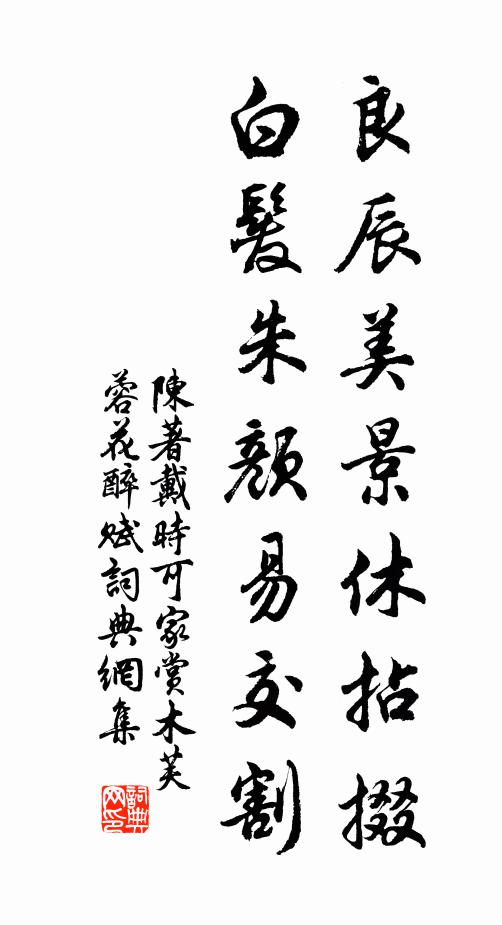 良辰美景休拈掇
白髮朱顏易交割
陳著戴時可家賞木芙
蓉花醉賦詞典網集
詞典
网印